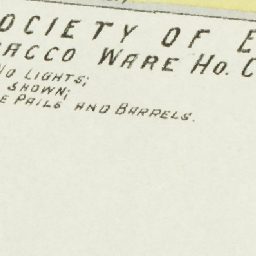 OCIETY OF E
ACCO WARE HO. C
NO LIGHTS;
SHOWN;
E PAILS AND BARRELS.